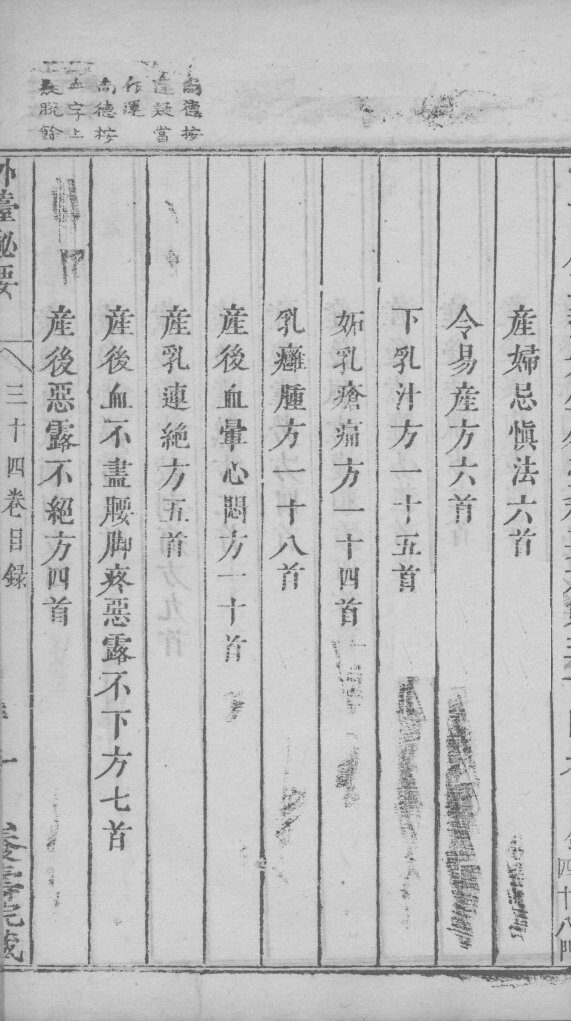 四十八門
產婦忌慎法六首
令易產方六首
下乳汁方一十五首
妬乳瘡痛方一十四首
乳癰腫方一十八首
產後血暈心悶方一十首
產乳運絕方五首
產後血不盡腰脚疼惡露不下方七首
產後惡露不絕方四首
外臺秘要
三十四卷目錄
尚德按
疑當
作運
尚德按
五字上
疑脫餘